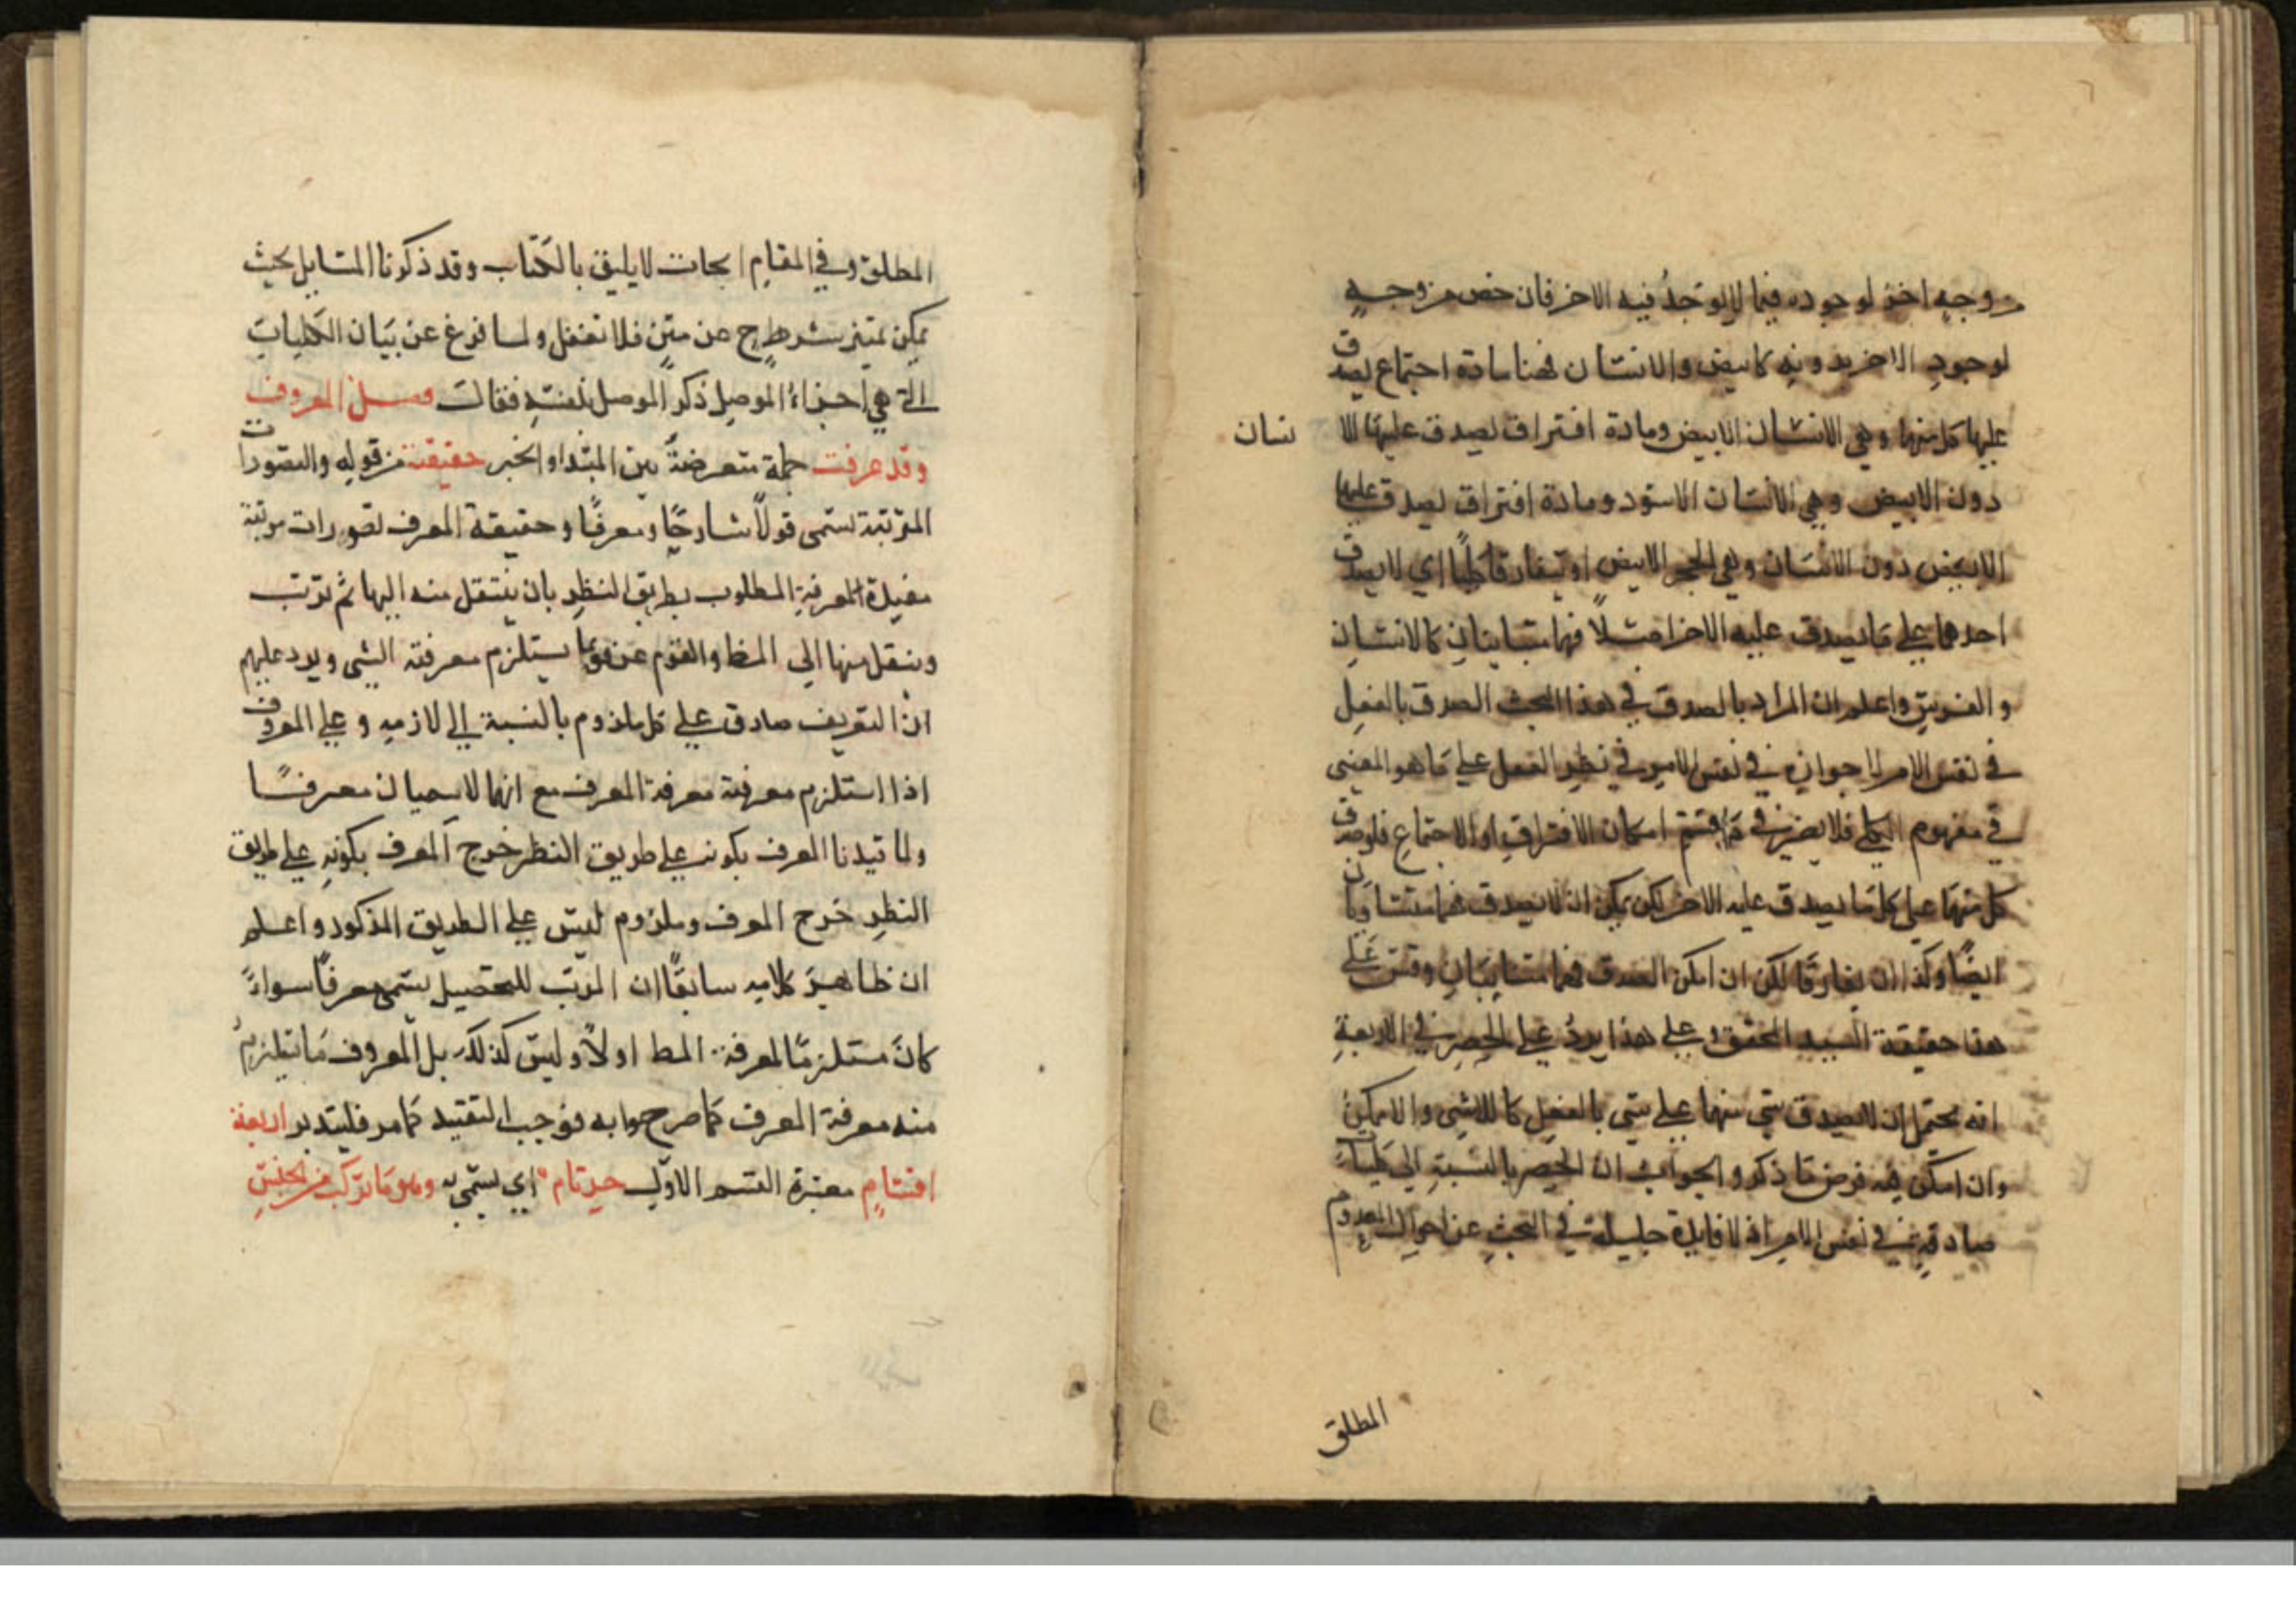 من وجه اخص لوجوده فيما لا يوجد فيه الاخر فان خص من وجه
لوجود الاخر بدونه كابيض والانسان فهنا مادة اجتماع يصدق
عليها كل منهما وهي الانسان الابيض ومادة افتراق يصدق عليها الا
نسان
دون الابيض وهي الانسان الاسود ومادة افتراق يصدق عليها
الابيض دون الانسان وهي الحجر الابيض او تفارقا كليا اي لا يصدق
احدهما على ما يصدق عليه الاخر اصلًا فهما متباينان كالانسان
والفرس واعلم ان المراد بالصدق في هذا البحث الصدق بالفعل
في نفس الامر لا جوازه في نفس الامر في نظر العقل على ما هو المعنى
في مفهوم الكلي فلا يضر في قسم امكان الافتراق او الاجتماع فلو صدق
كل منهما على كل ما يصدق عليه الاخر لكن يمكن ان لا يصدق فهما متساويان
ايضًا وكذا ان تفارقا لكن ان امكن الصدق فهما متباينان وقس على
هذا حقيقة السيد المحقق وعلى هذا يرد على الحصر في الاربعة
انه يحتمل ان لا يصدق شي منها على شي بالفعل كاللاشي واللاممكن
وان امكن فيه فرض ما ذكر والجواب ان الحصر بالنسبة الى كليات
صادقة في نفس الامر اذ لا فايدة جليلة في البحث عن احوال المعدوم
المطلق
المطلق وفي المقام ابحاث لا يليق بالكتاب وقد ذكرنا المسايل بحيث
يمكن تميز شرطح عن متن فلا تغفل ولما فرغ عن بيان الكليات
التي هي اجزاء الموصل ذكر الموصل بنفسه فقالت فصل المعروف
وقد عرفت جملة متعرضة بين المبتدا والخبر حقيقته من قوله والتصورات
المرتبة تسمى قولًا شارحًا ومعرفًا وحقيقة المعرف تصورات مرتبة
مفيدة لمعرفة المطلوب بطريق النظر بان ينتقل منه اليها ثم ترتب
وينتقل منها الي المط والقوم عرفوه بما يستلزم معرفته الشي ويرد عليهم
ان التعريف صادق علي كل ملزوم بالنسبة الي لازمه وعلي المعرف
اذا استلزم معرفته معرفة المعرف مع انهما لا يسميان معرفًا
ولما قيدنا المعرف بكونه علي طريق النظر خرج المعرف بكونه علي طريق
النظر خرج المعرف وملزوم ليس علي الطريق المذكور واعلم
ان ظاهر كلامه سابقًا ان المرتب للتحصيل يسمى معرفًا سواءً
كان مستلزمًا لمعرفة المط اولًا وليس كذلك بل المعروف ما يتلزم
منه معرفة المعرف كما صرحوا به فوجب التقييد كما مر فليتدبر اربعة
اقسام معتبرة القسم الاول حد تام اي يسمي به وهو ما تركب من الجنس